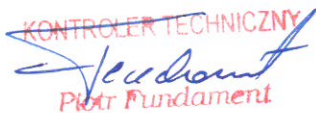 KONTROLER TECHNICZNY
Piotr Fundament